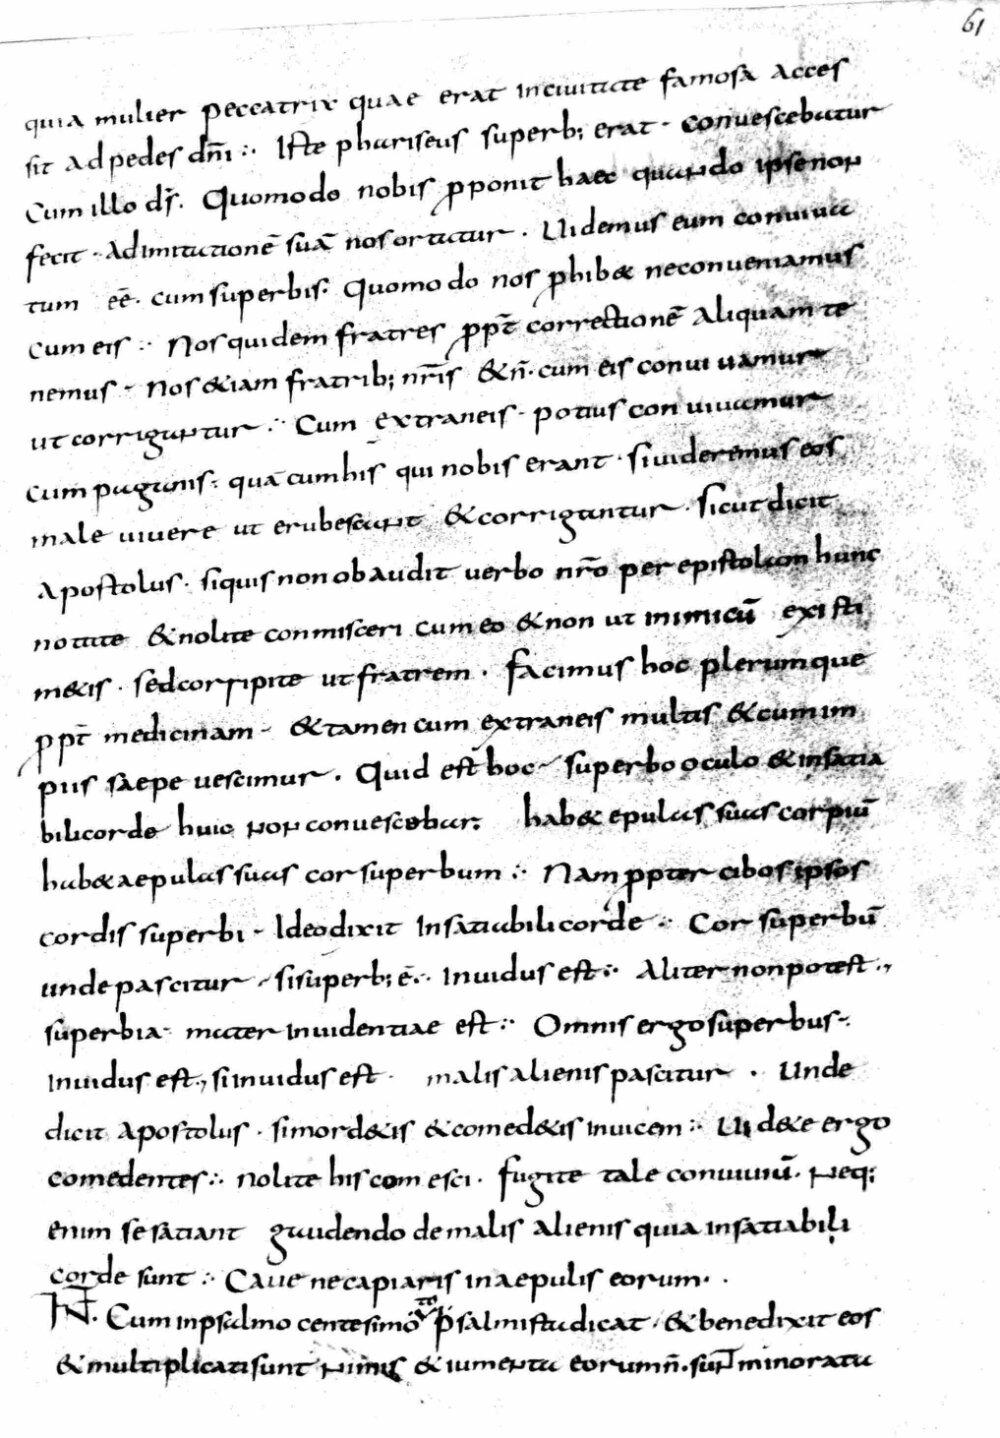 61
quia mulier peccatrix quae erat inciuitate famosa acces
sit adpedes dn̄i ∴ Iste phariseus superb; erat · conuescebatur
cum illo dr̄s. Quomodo nobis ꝓponit haec quando ipse non
fecit · Adimitationē suā nos ortatur . Uidemus eum conuiua
tum eē · cum superbis. Quomodo nos ꝓhib& neconueniamus
cum eis ∴ Nos quidem fratres ꝓpt̄ correctionē aliquam te
nemus · Nos &iam fratrib; nr̄is &n̄ · cum eis conuiuamur
ut corrigantur ∴ Cum extraneis · potius conuiuamur
cum paganis : quā cum his qui nobis erant · siuideremus eos
male uiuere ut erubescant & corrigantur · sicut dicit
Apostolus · siquis non obaudit uerbo nr̄o per epistolam hunc
notate & nolite conmisceri cum eo & non ut inimicū existi
m&is · sed corripite ut fratrem . Facimus hoc plerumque
ꝓpt̄ medicinam · & tamen cum extraneis multis & cum im
piis saepe uescimur . Quid est hoc · superbo oculo & insatia
bili corde huic non conuescebar; hab& epulas suas cor piū
hab& aepulas suas cor superbum ∴ Nam ꝓpter cibos ipsos
cordis superbi · Ideo dixit insatiabili corde ∴ Cor superbū
unde pascitur · si superb; ē ∴ Inuidus est ∴ Aliter non potest .,
superbia · mater inuidentiae est ∴ Omnis ergo superbus ·
inuidus est ., si inuidus est · malis alienis pascitur . Unde
dicit apostolus · si mord&is & comed&is inuicem ∴ Uid&e ergo
comedentes ∴ nolite his comesci . fugite tale conuiuiū · neq;
enim se satiant gaudendo de malis alienis quia insatiabili
corde sunt ∴ Caue ne capiaris in aepulis eorum · .
Cum in psalmo centesimo psalmista dicat · & benedixit eos
& multiplicati sunt nimis & iumenta eorum n̄ · sunt minorata